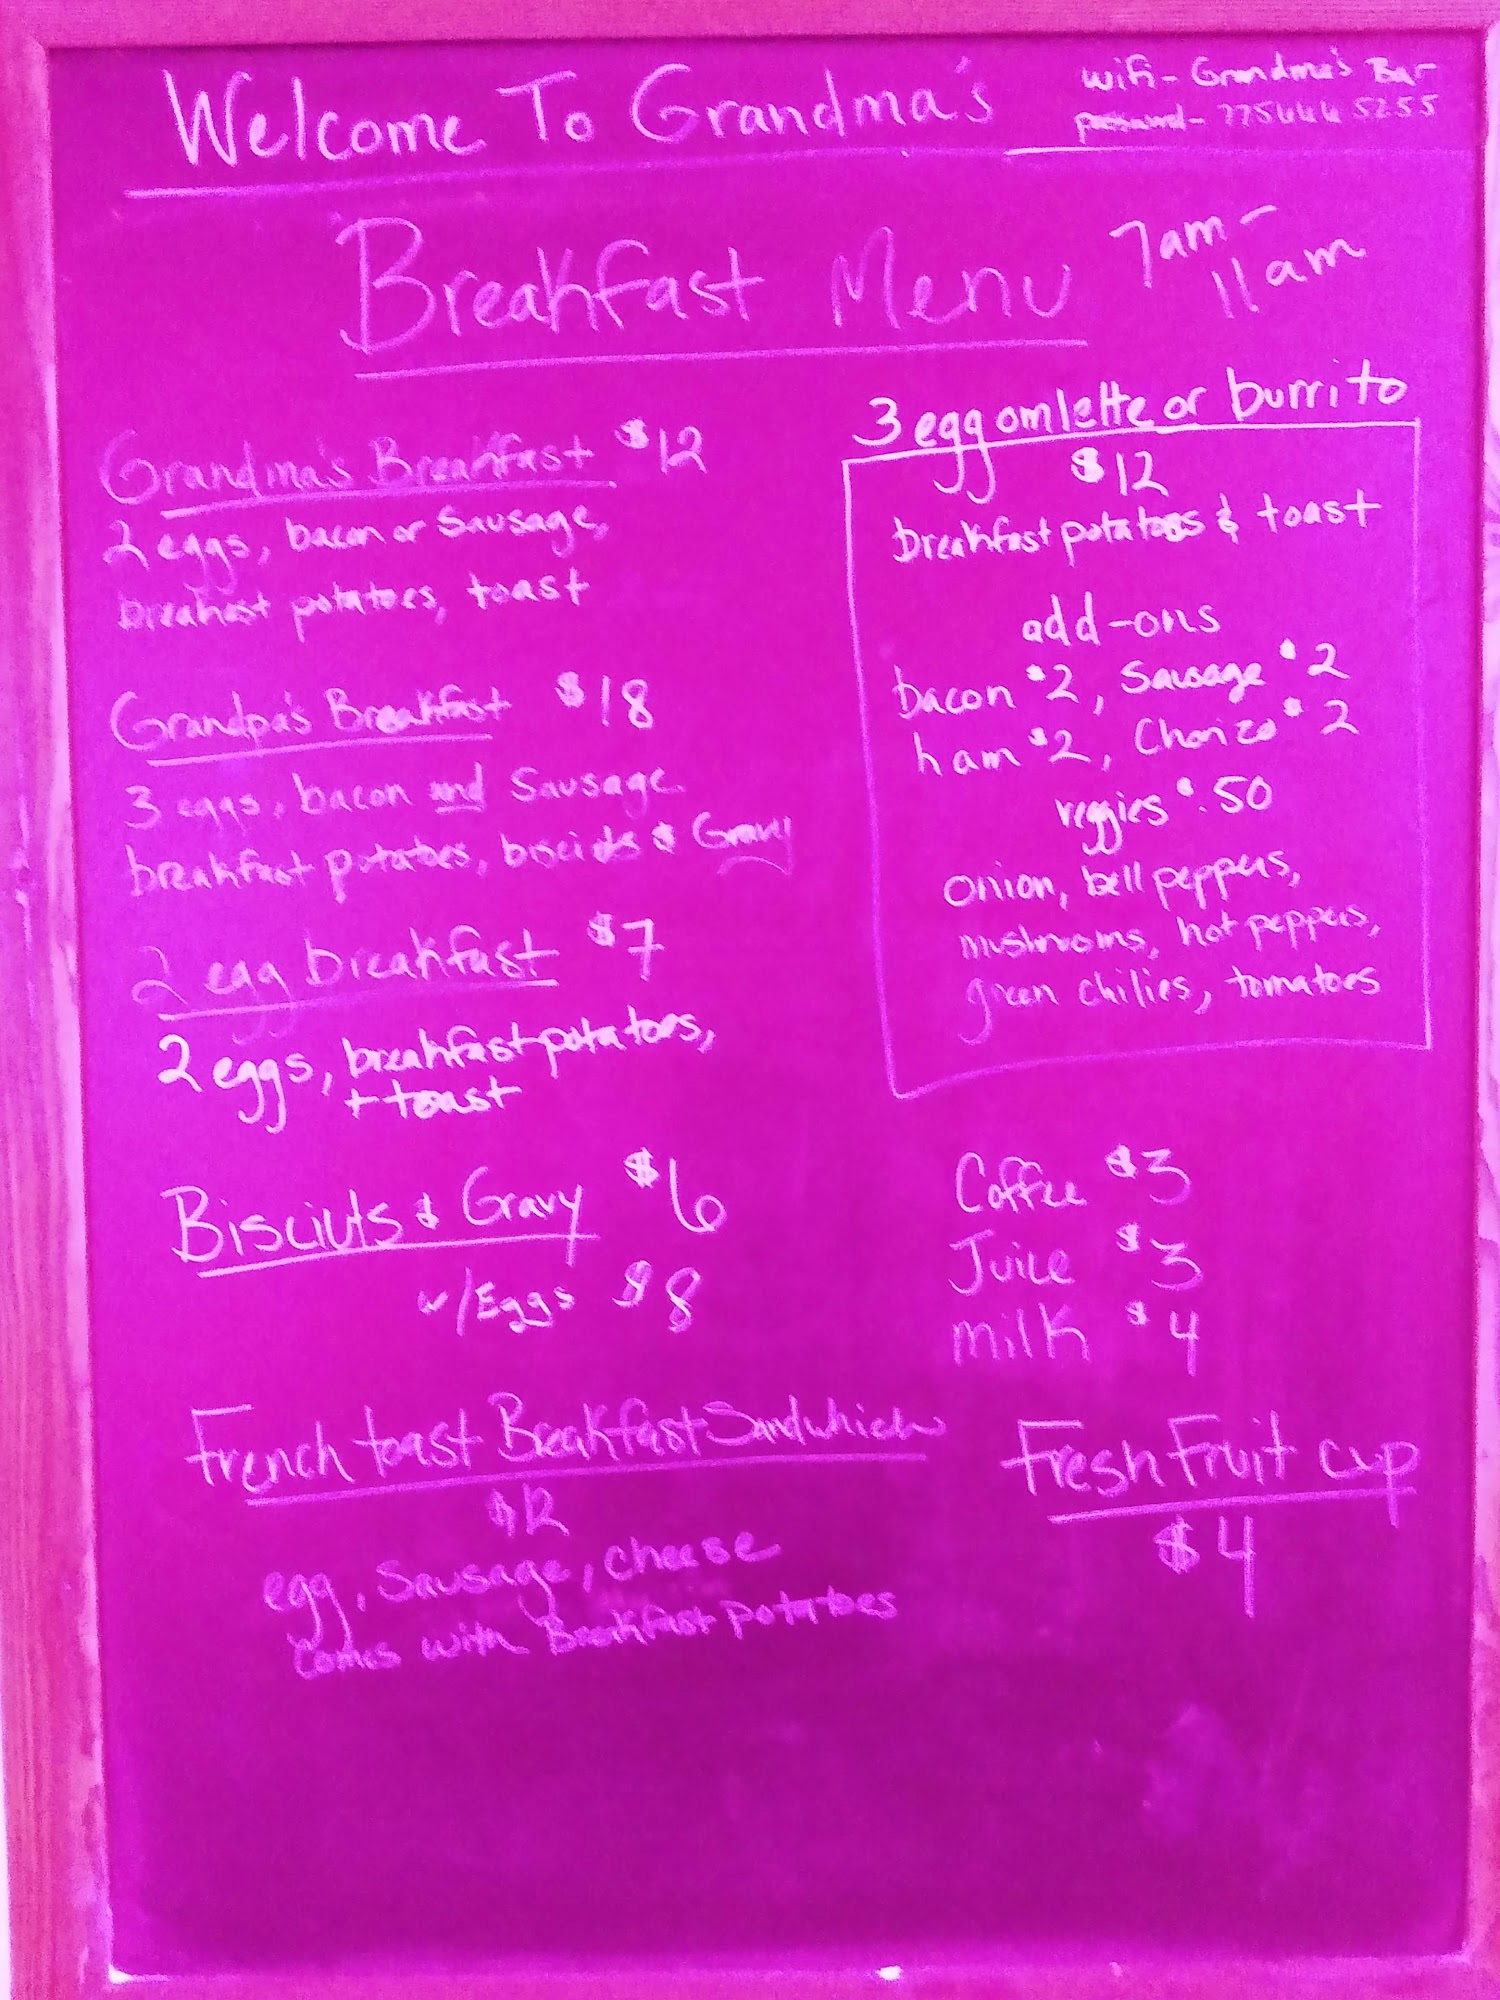 Welcome To Grandma's
wifi - Grandma's Bar
password - 775 444 5255
Breakfast Menu
7am -
11am
Grandma's Breakfast $12
2 eggs, bacon or Sausage,
potatoes, toast
Grandpa's Breakfast $18
3 eggs, bacon and Sausage
breakfast potatoes, & Gravy
2 egg breakfast $7
2 eggs, breakfast potatoes,
+ toast
Bisciuts & Gravy $6
w/Eggs $8
French toast Breakfast Sandwhich
$12
egg, Sausage, cheese
comes with Breakfast potatoes
3 egg omlette or burrito
$12
breakfast potatoes & toast
add-ons
bacon $2, Sausage $2
ham $2, Chorizo $2
veggies $.50
onion, bell peppers,
mushrooms, hot peppers,
green chilies, tomatoes
Coffee $3
Juice $3
milk $4
Fresh Fruit cup
$4